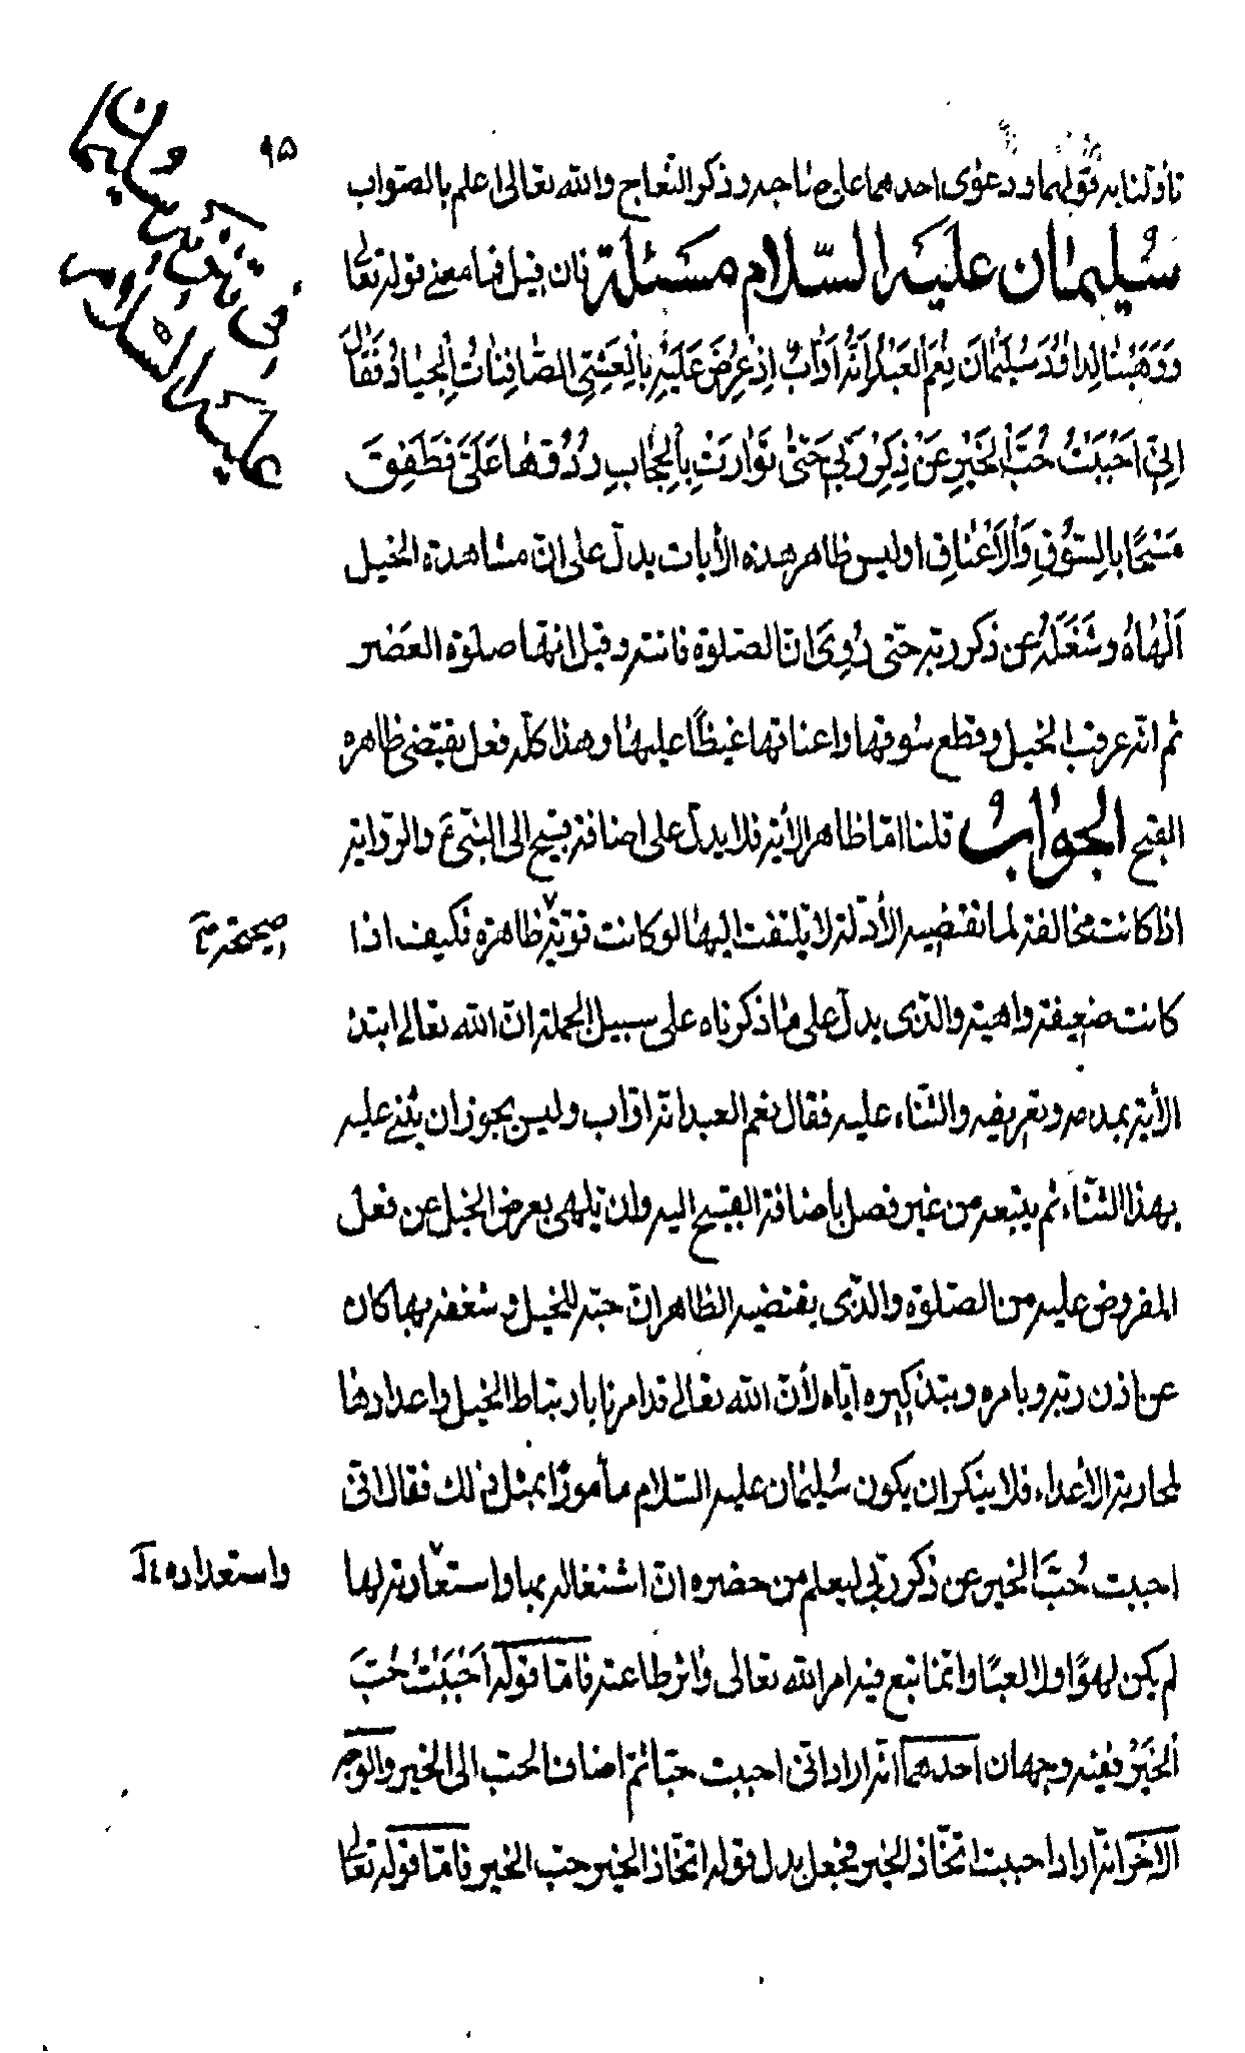 ٩٥
في تنزيه سليمان
عليه السلام
تأولنا به قولهما ودعوى احدهما على صاحبه وذكر النعاج والله تعالى اعلم بالصواب
سُليمان عليَه السّلام مسَئلة فان قيل فما معنى قوله تعالى
وَوَهَبْنَا لِدَاوُدَ سُلَيْمَانَ نِعْمَ الْعَبْدُ اِنَّهُ اَوَّابٌ اِذْ عُرِضَ عَلَيْهِ بِالْعَشِيِّ الصَّافِنَاتُ الْجِيَادُ فَقَالَ
اِنِّي اَحْبَبْتُ حُبَّ الْخَيْرِ عَنْ ذِكْرِ رَبِّي حَتَّىٰ تَوَارَتْ بِالْحِجَابِ رُدُّوهَا عَلَيَّ فَطَفِقَ
مَسْحًا بِالسُّوقِ وَالْاَعْنَاقِ اوليس ظاهر هذه الأيات يدلّ على انّ مشاهدة الخيل
اَلْهَاهُ وشَغَلَهُ عن ذكر ربه حتّى رُوِىَ انّ الصلوة فاتته وقيل انّها صلوة العَصْر
ثم انّه عرقب الخيل وقطع سُوقها واعناقها غيظًا عليها وهذا كلّه فعل يقتضى ظاهره
القبح الجوابُ قلنا امّا ظاهر الأية فلا يدلّ على اضافة قبيح الى النبيّ ع والرواية
اذا كانت مخالفة لما تقتضيه الأدلة لا يلتفت اليها لو كانت قوية ظاهرة فكيف اذا
صحيحة
كانت ضعيفة واهية والذى يدلّ على ما ذكرناه على سبيل الجملة انّ الله تعالى ابتدئ
الأية بمدحه وتعريفه والثناء عليه فقال نعم العبد انه اوّاب وليس يجوز ان يثنى عليه
بهذا الثّناء ثم يتبعه من غير فصل باضافة القبيح اليه وان تلهى بعرض الخيل عن فعل
المفروض عليه من الصلوة والذى يقتضيه الظاهر انّ حبه للخيل وشغفه بها كان
عن اذن ربه وبامره وبتذكيره ايّاه لأنّ الله تعالى قد امرنا بارتباط الخيل واعدادها
لمحاربة الأعداء فلا ينكر ان يكون سُليمان عليه السّلام مأمورًا بمثل ذلك فقال انّى
احببت حُبَّ الخير عن ذكر ربّى ليعلم من حضره انّ اشتغاله بها واستعداده لها
واستعداده
لم يكن لهوًا ولا لعبًا وانّما تبع فيه امر الله تعالى واثر طاعته فامّا قوله اَحْبَبْتُ حُبَّ
الْخَيْرِ ففيه وجهان احدهما انّه اراد انّى احببت حبًّا ثمّ اضاف الحب الى الخير والوجه
الاخر انّه اراد احببت اتخّاذ الخير فجعل بدل قوله اتخّاذ الخير حبّ الخير فامّا قوله تعالى